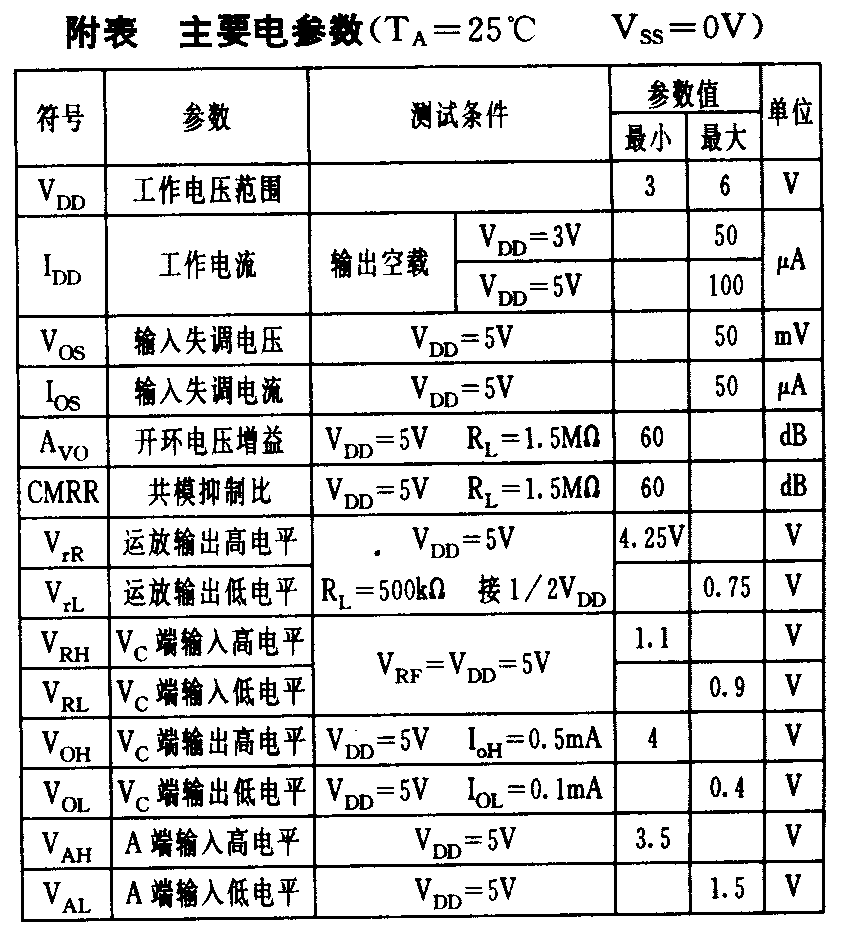 附表 主要电参数(TA=25℃ VSS=0V)
符号 参数 测试条件 参数值 单位
最小 最大
VDD 工作电压范围 3 6 V
IDD 工作电流 输出空载 VDD=3V 50 μA
VDD=5V 100
VOS 输入失调电压 VDD=5V 50 mV
IOS 输入失调电流 VDD=5V 50 μA
AVO 开环电压增益 VDD=5V RL=1.5MΩ 60 dB
CMRR 共模抑制比 VDD=5V RL=1.5MΩ 60 dB
VrR 运放输出高电平 VDD=5V 4.25V V
VrL 运放输出低电平 RL=500kΩ 接1/2VDD 0.75 V
VRH VC端输入高电平 VRF=VDD=5V 1.1 V
VRL VC端输入低电平 0.9 V
VOH VC端输出高电平 VDD=5V IoH=0.5mA 4 V
VOL VC端输出低电平 VDD=5V IOL=0.1mA 0.4 V
VAH A端输入高电平 VDD=5V 3.5 V
VAL A端输入低电平 VDD=5V 1.5 V